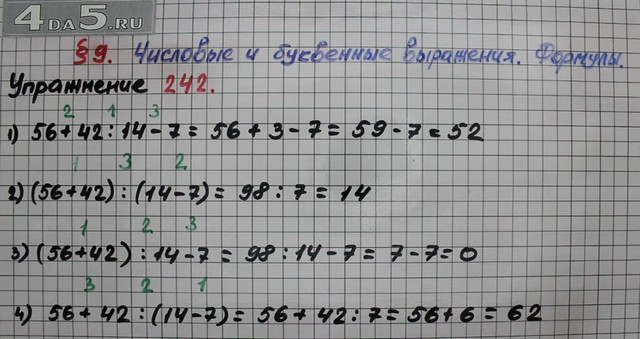 4DA5.RU
§ 9. Числовые и буквенные выражения. Формулы.
Упражнение 242.
2 1 3
1) 56 + 42 : 14 - 7 = 56 + 3 - 7 = 59 - 7 = 52
1 3 2
2) (56 + 42) : (14 - 7) = 98 : 7 = 14
1 2 3
3) (56 + 42) : 14 - 7 = 98 : 14 - 7 = 7 - 7 = 0
3 2 1
4) 56 + 42 : (14 - 7) = 56 + 42 : 7 = 56 + 6 = 62